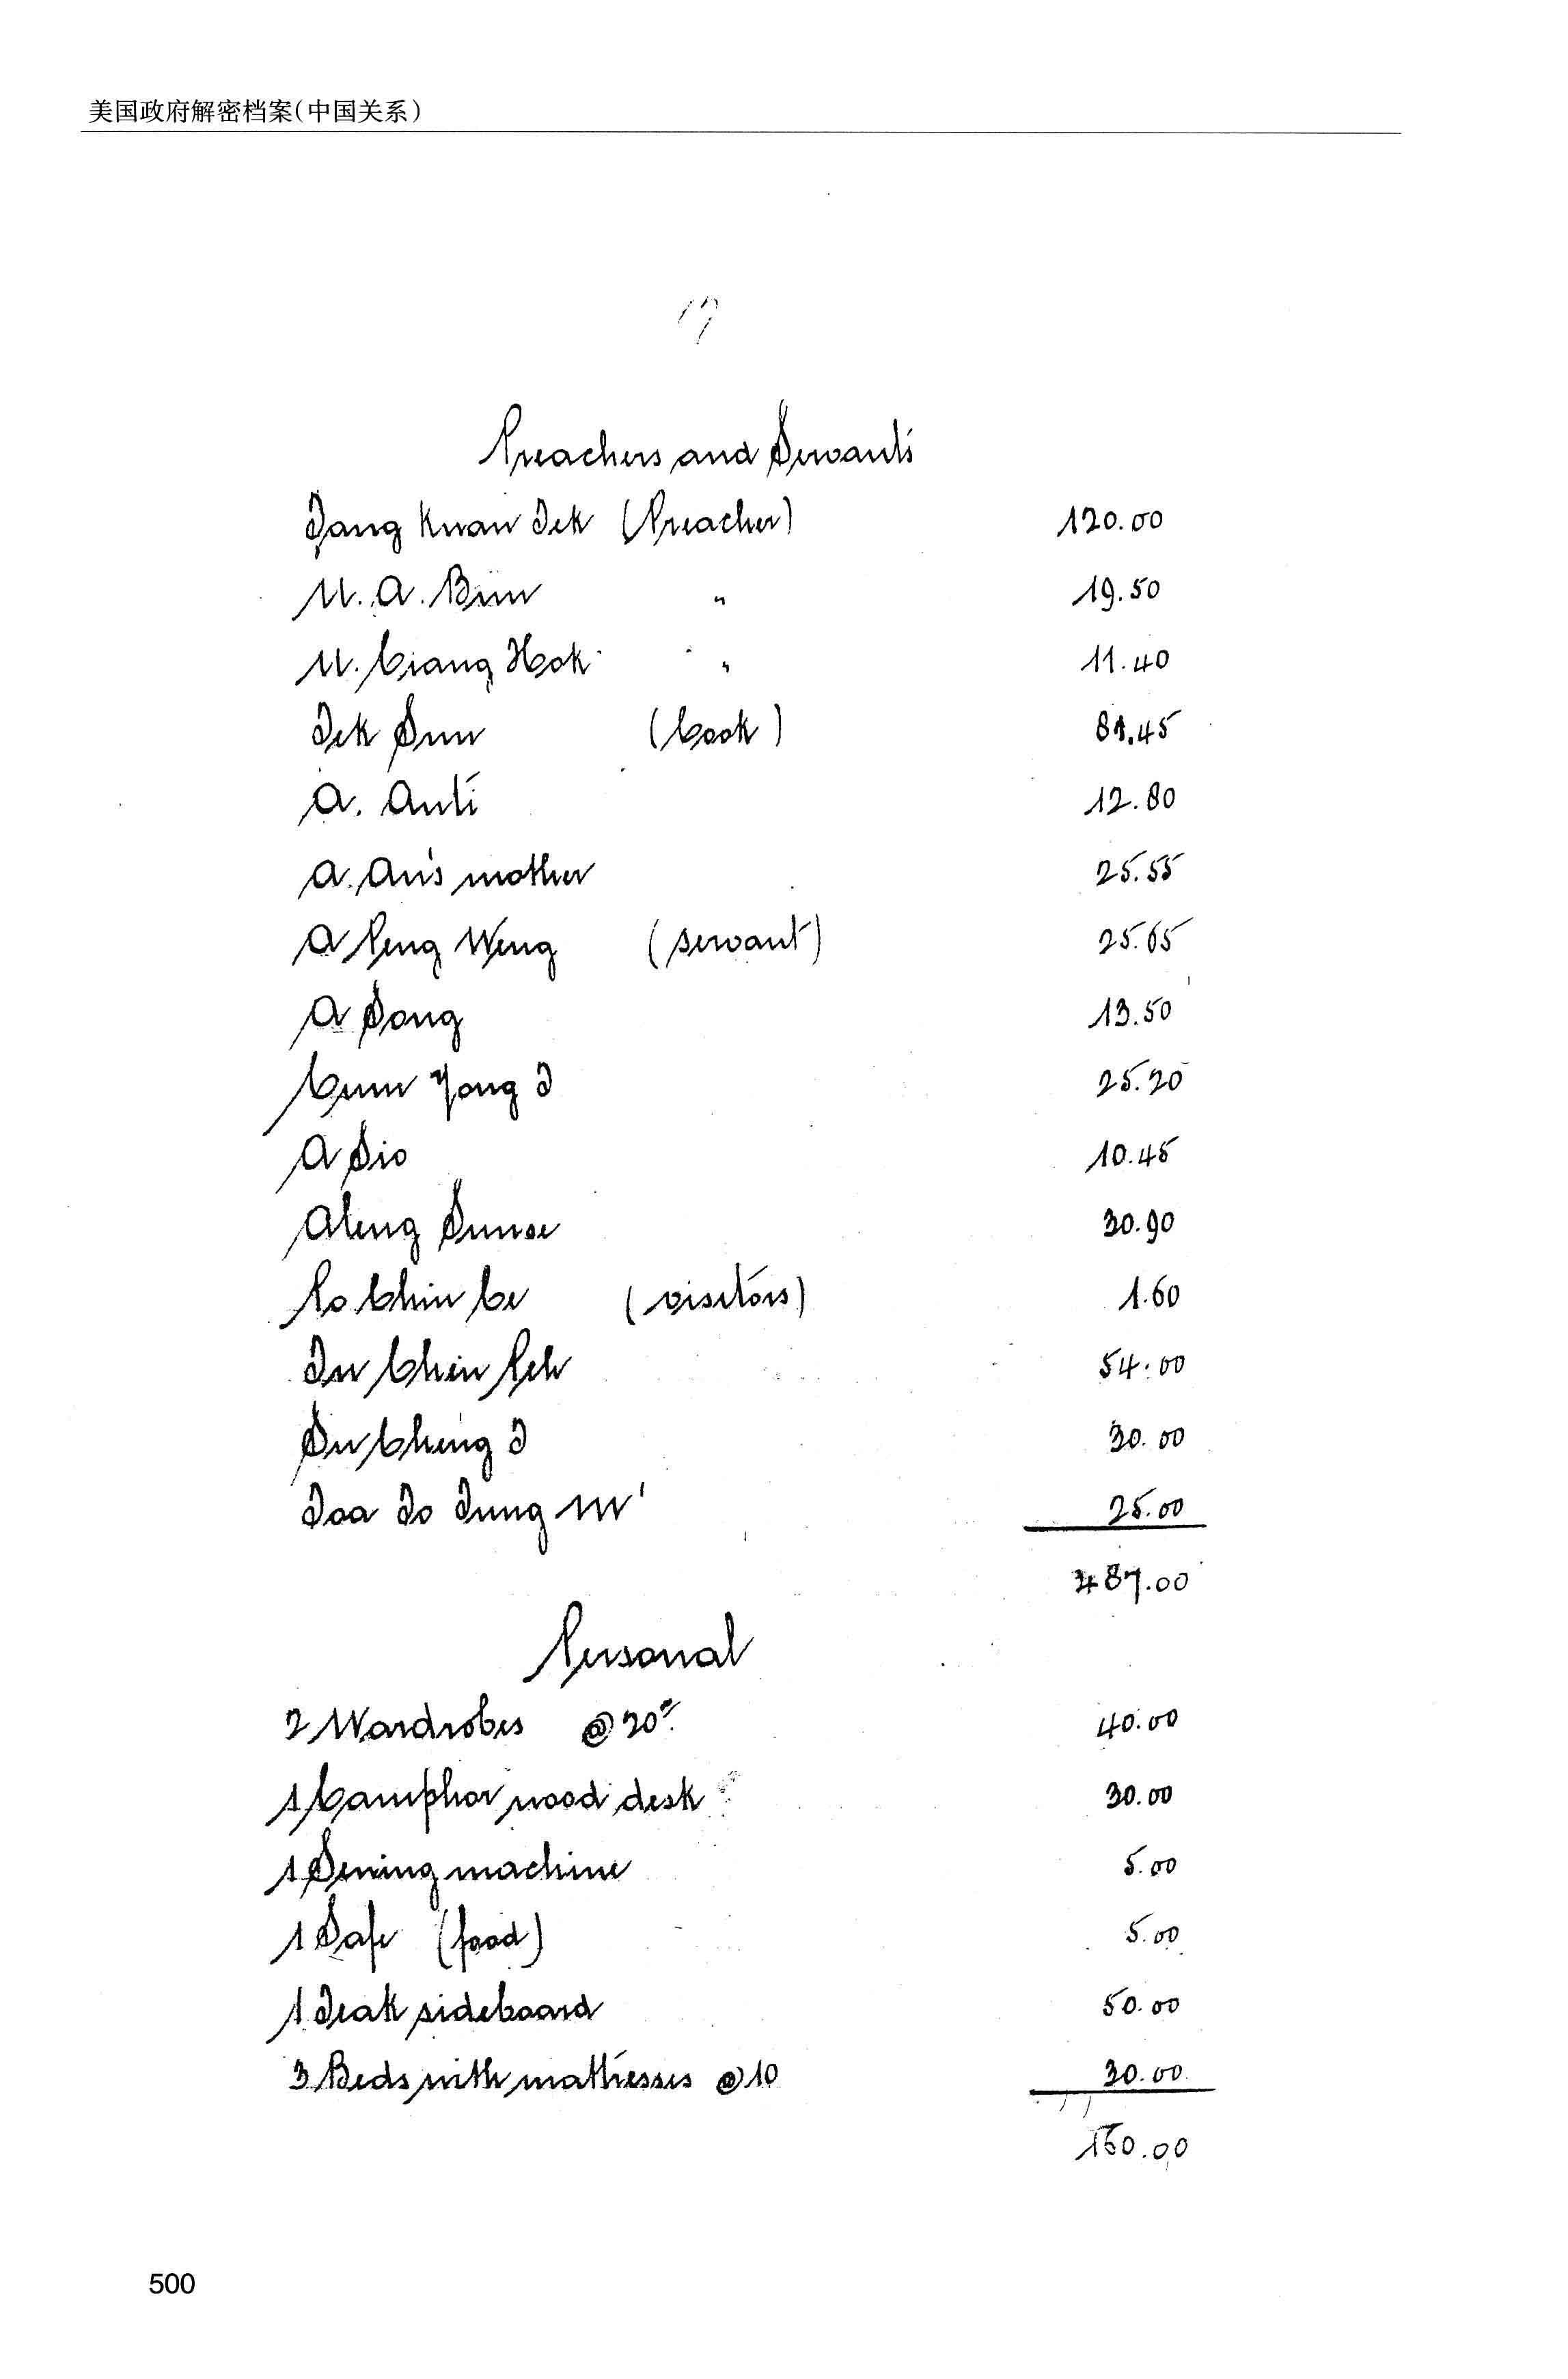 美国政府解密档案(中国关系)
17
Preachers and Servants
Tang Kuan Tek (Preacher) 120.00
U. A. Bun " 19.50
U. Ciang Hok " 11.40
Tek Sun (Cook) 81.45
A. Anti 12.80
A. An's mother 25.55
A Peng Weng (servant) 25.65
A Song 13.50
Cum Yong I 25.20
A Sio 10.45
Aleng Sunse 30.90
Po Chin Ce (visitors) 1.60
Tu Chin Peh 54.00
Su Cheng I 30.00
Toa To Tung M' 25.00
487.00
Personal
2 Wardrobes @ 20 40.00
1 Camphor wood desk 30.00
1 Sewing machine 5.00
1 Safe (food) 5.00
1 Teak sideboard 50.00
3 Beds with mattresses @ 10 30.00
160.00
500